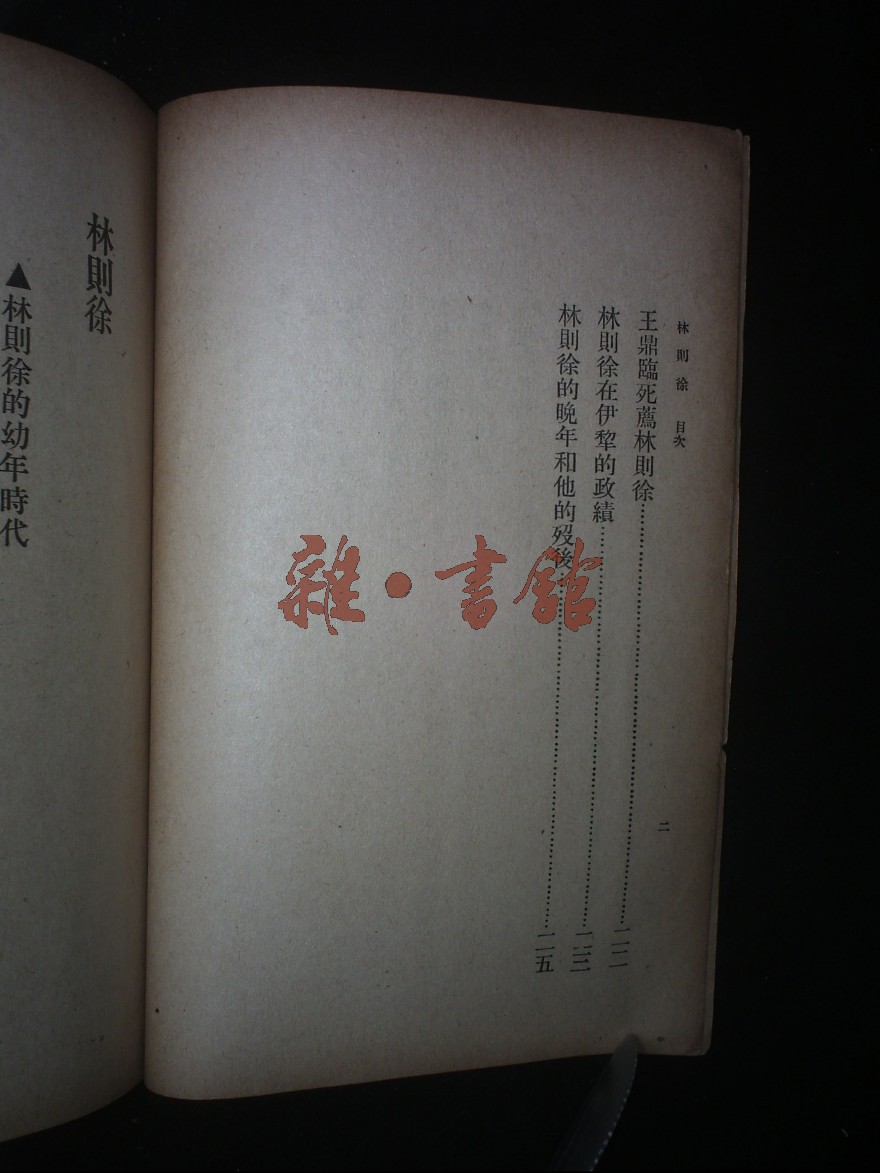 林則徐 目次
王鼎臨死薦林則徐……二二
林則徐在伊犂的政績……二三
林則徐的晚年和他的歿後……二五
二
林則徐
▲林則徐的幼年時代
雜·書館